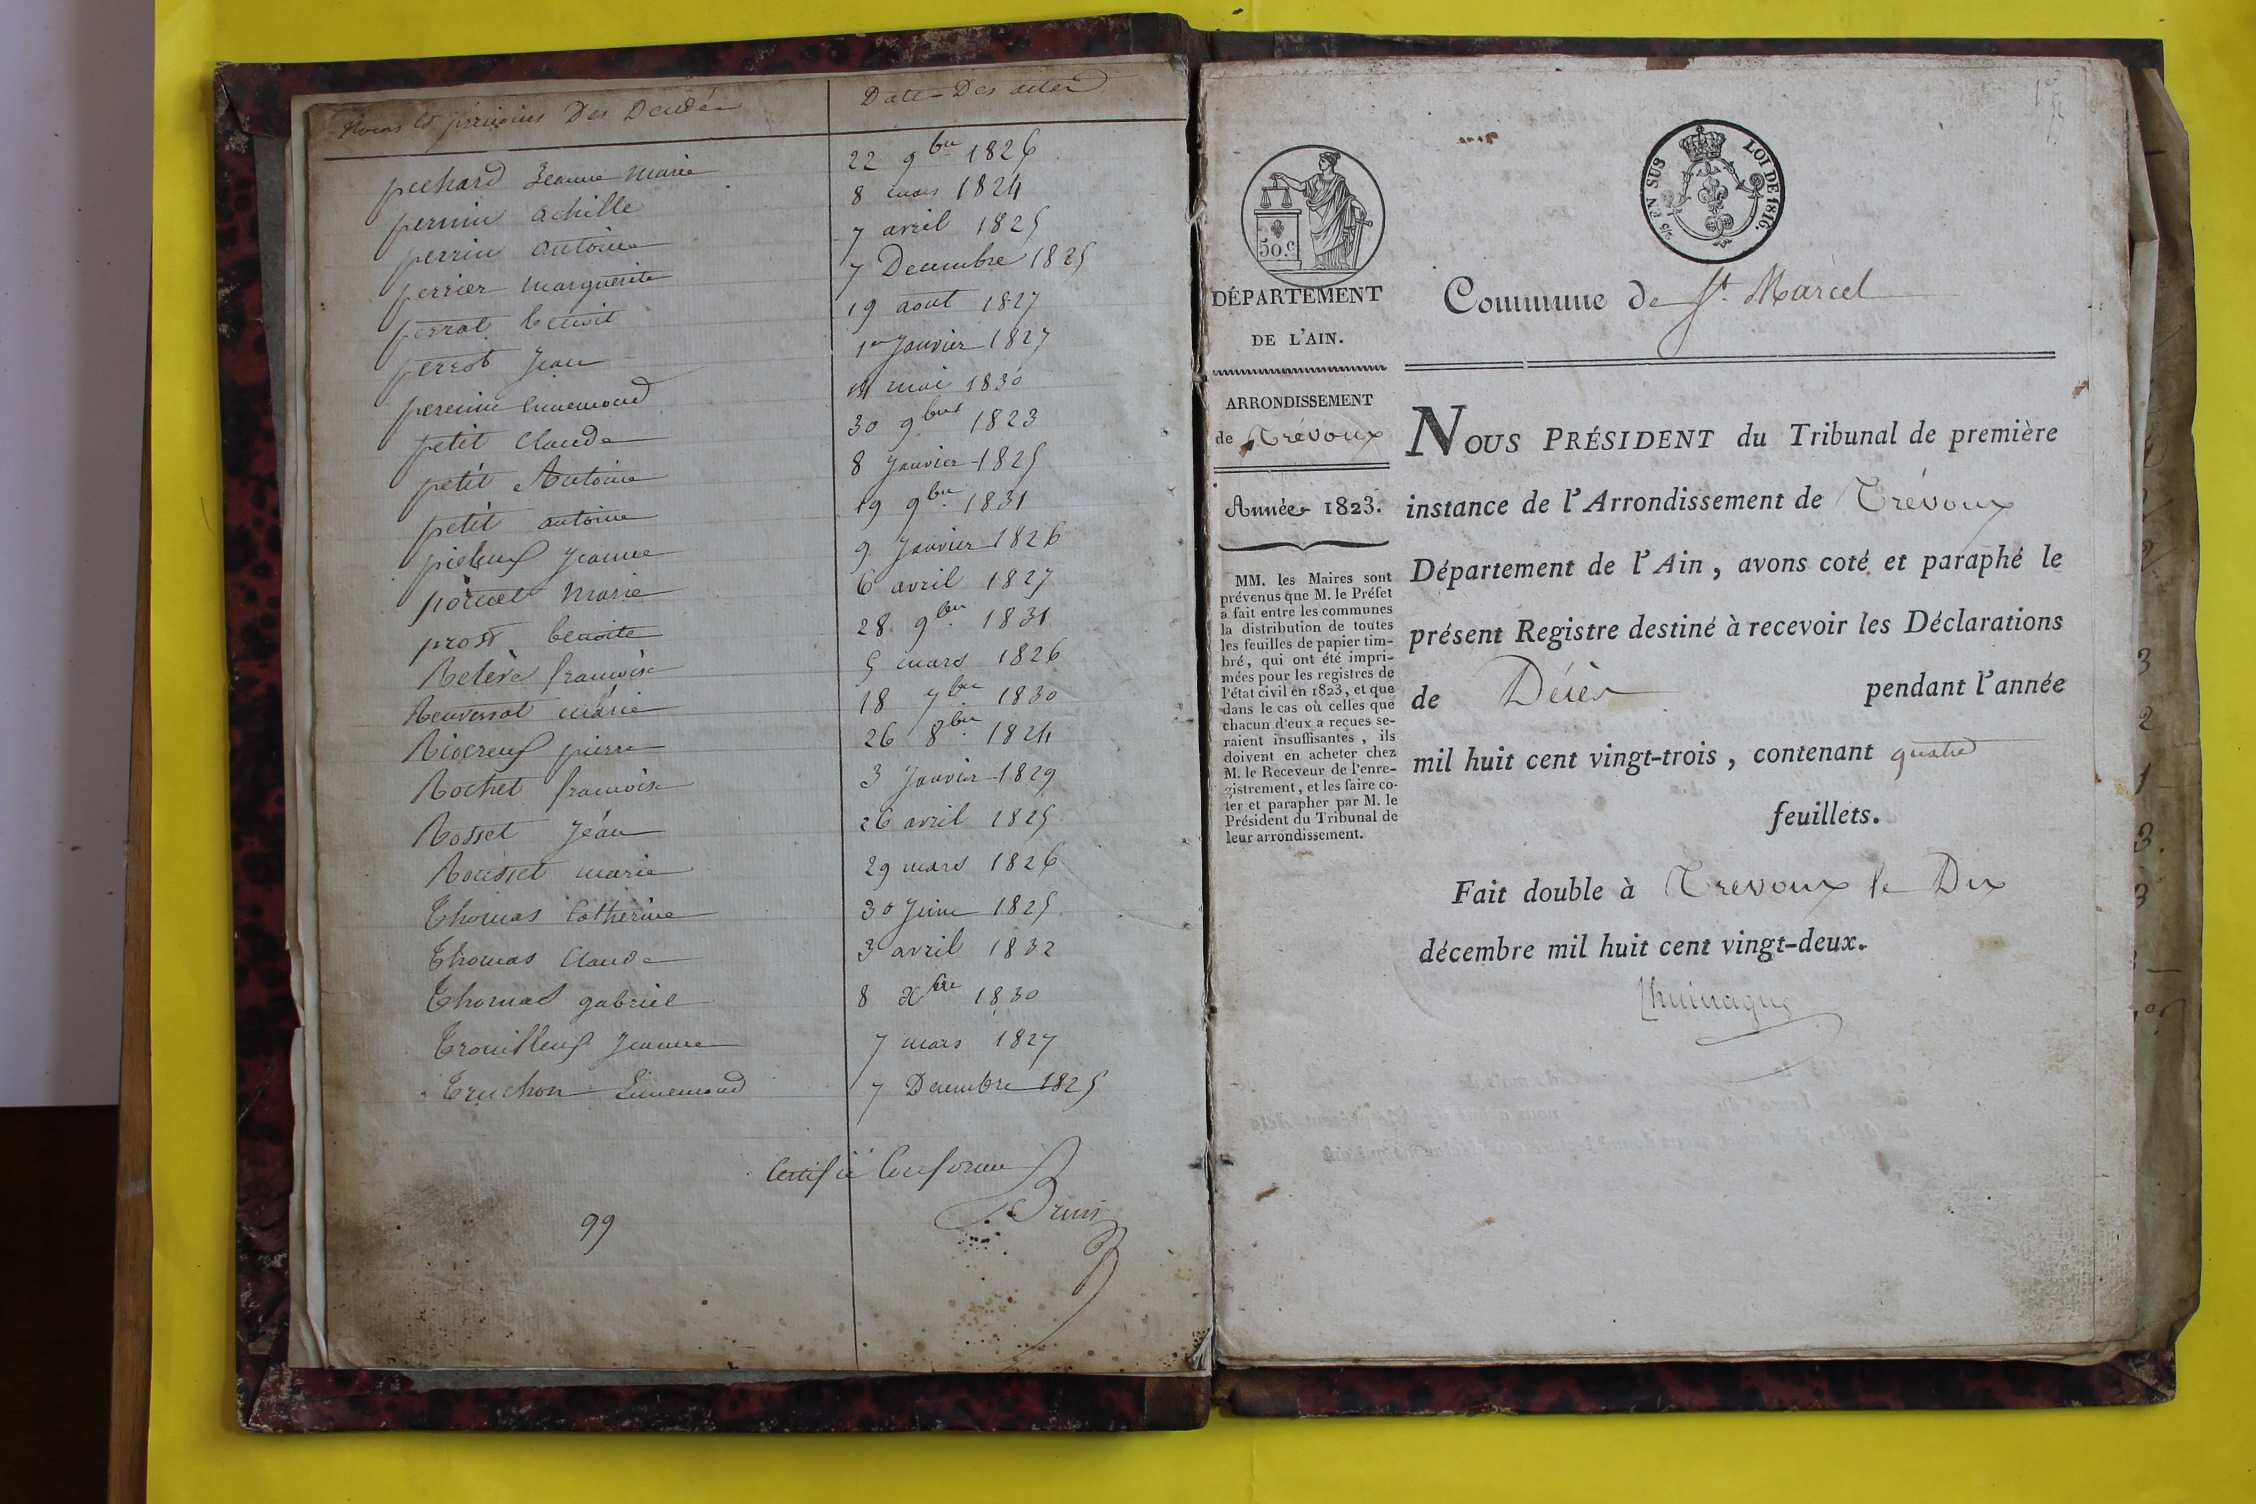 Noms et prénoms Des Décédés Date Des actes
pechard Jeanne Marie 22 9bre 1826
perrin achille 8 mars 1824
perrin antoine 7 avril 1825
perrier marguerite 7 Decembre 1825
perrat benoit 19 aout 1827
perrot Jean 1er Janvier 1827
ennemond mai 1830
petit Claude 30 9bre 1823
petit Antoine 8 Janvier 1825
petit antoine 19 9bre 1831
Jeanne 9 Janvier 1826
Marie 6 avril 1827
prost benoite 28 9bre 1831
françoise 5 mars 1826
marie 18 7bre 1830
Riocreux pierre 26 8bre 1824
Rochet françoise 3 Janvier 1829
Rosset Jean 26 avril 1825
Rousset marie 29 mars 1826
Thomas Catherine 30 Juin 1825
Thomas Claude 3 avril 1832
Thomas gabriel 8 Xbre 1830
Trouilleux Jeanne 7 mars 1827
Truchon Ennemond 7 Decembre 1825
Certifié Conforme
Brun
99
1er
50.c
5/6 EN SUS LOI DE 1816.
DÉPARTEMENT
DE L'AIN.
ARRONDISSEMENT
de Trévoux
Année 1823.
MM. les Maires sont
prévenus que M. le Préfet
a fait entre les communes
la distribution de toutes
les feuilles de papier tim-
bré, qui ont été impri-
mées pour les registres de
l'état civil en 1823, et que
dans le cas où celles que
chacun d'eux a reçues se-
raient insuffisantes, ils
doivent en acheter chez
M. le Receveur de l'enre-
gistrement, et les faire co-
ter et parapher par M. le
Président du Tribunal de
leur arrondissement.
Commune de St. Marcel
NOUS PRÉSIDENT du Tribunal de première
instance de l'Arrondissement de Trévoux
Département de l'Ain, avons coté et paraphé le
présent Registre destiné à recevoir les Déclarations
de Décès pendant l'année
mil huit cent vingt-trois, contenant quatre
feuillets.
Fait double à Trevoux le Dix
décembre mil huit cent vingt-deux.